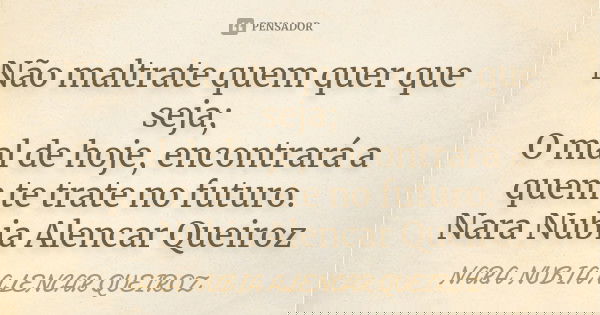 PENSADOR
Não maltrate quem quer que
seja;
O mal de hoje, encontrará a
quem te trate no futuro.
Nara Nubia Alencar Queiroz
NARA NUBIA ALENCAR QUEIROZ